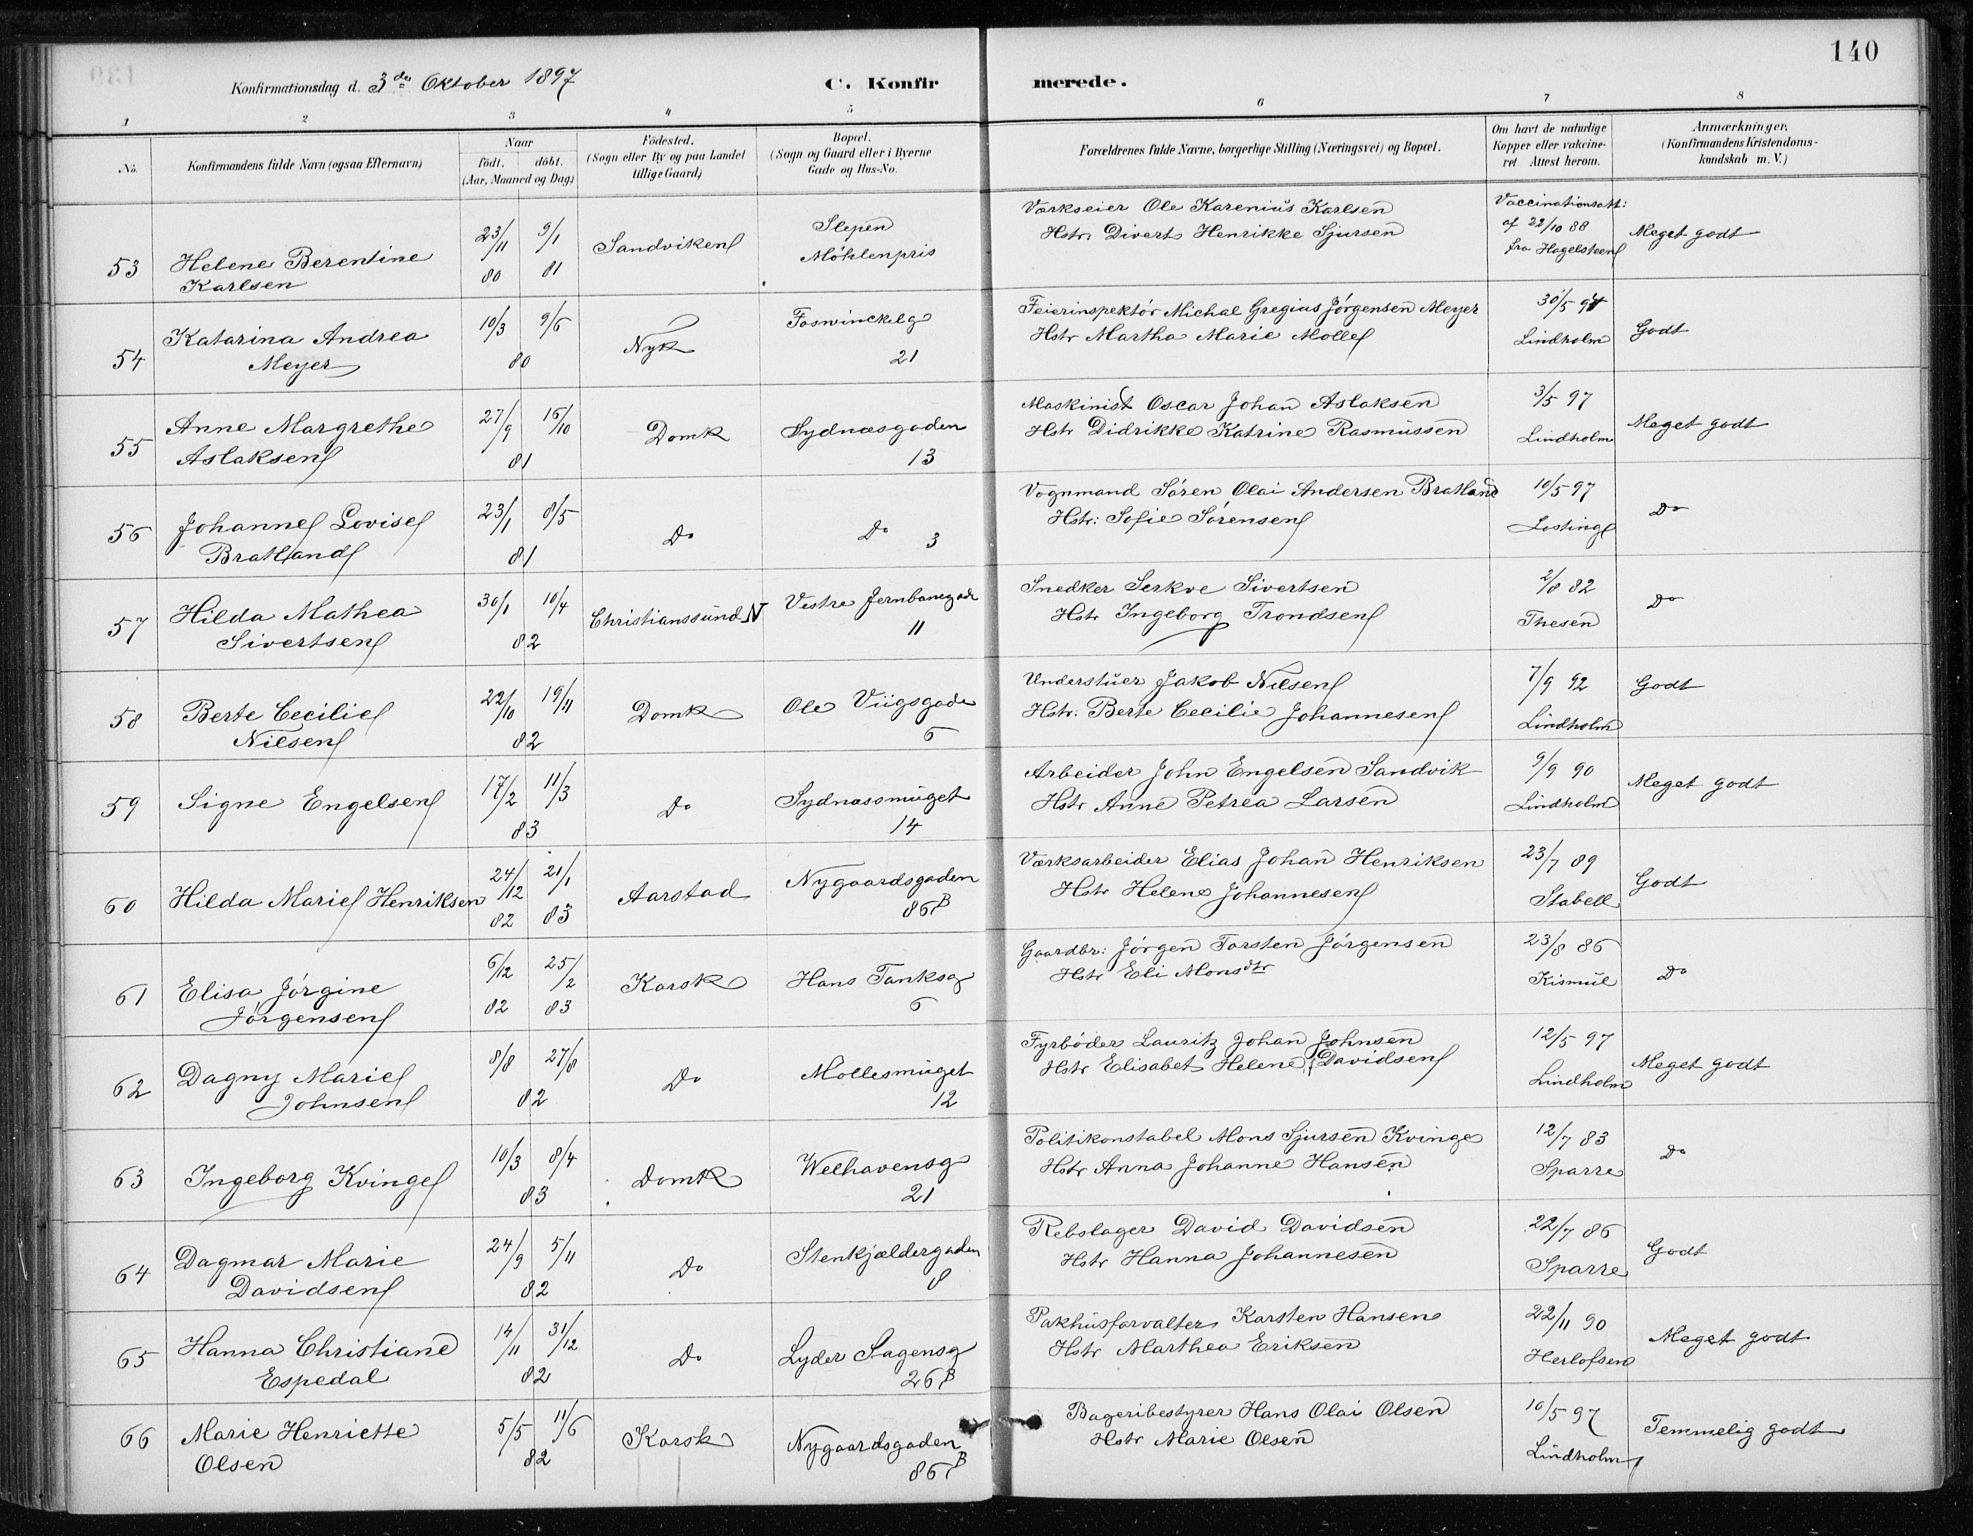 140
Konfirmationsdag d. 3de Oktober 1897 C. Konfirmerede.
1 2 3 4 5 6 7 8
No. Konfirmandens fulde Navn (ogsaa Efternavn) Naar födt. döbt. (Aar, Maaned og Dag) Födested. (Sogn eller By og paa Landet tillige Gaard) Bopæl. (Sogn og Gaard eller i Byerne Gade og Hus-No. Forældrenes fulde Navne, borgerlige Stilling (Næringsvei) og Bopæl. Om havt de naturlige Kopper eller vakcineret. Attest herom. Anmærkninger. (Konfirmandens Kristendomskundskab m. V.)
53 Helene Berentine Karlsen 23/11 80 9/1 81 Sandviken Slepen Møhlenpris Værkseier Ole Karenius Karlsen Hstr. Divert Henrikke Sjursen Vaccinationsatt: af 22/10 88 fra Hagelsteen Meget godt
54 Katarina Andrea Meyer 10/3 9/6 80 Nyk Foswinckelg 21 Feierinspektør Michal Gregius Jørgensen Meyer Hstr Martha Marie Molle 30/5 97 Lindholm Godt
55 Anne Margrethe Aslaksen 27/9 16/10 81 Domk Sydnæsgaden 13 Maskinist Oscar Johan Aslaksen Hstr Didrikke Katrine Rasmussen 3/5 97 Lindholm Meget godt
56 Johanne Lovise Bratland 23/1 8/5 81 Do Do 3 Vognmand Søren Olai Andersen Bratland Hstr: Sofie Sørensen 10/5 97 Losting Do
57 Hilda Mathea Sivertsen 30/1 10/4 82 Christianssund N Vestre Jernbanegade 11 Snedker Serkve Sivertsen Hstr Ingeborg Trondsen 2/8 82 Thesen Do
58 Berte Cecilie Nilsen 22/10 19/11 82 Domk Ole Viigsgade 6 Understuer Jakob Nilsen Hstr: Berte Cecilie Johannesen 7/9 92 Lindholm Godt
59 Signe Engelsen 17/2 11/3 83 Do Sydnæssmuget 14 Arbeider John Engelsen Sandvik Hstr Anne Petrea Larsen 9/9 90 Lindholm Meget godt
60 Hilda Marie Henriksen 24/12 82 21/1 83 Aarstad Nygaardsgaden 86B Værksarbeider Elias Johan Henriksen Hstr Helene Johannesen 23/7 89 Stabell Godt
61 Elisa Jørgine Jørgensen 6/12 82 25/2 83 Korsk Hans Tanksg 6 Gaardbr: Jørgen Torsten Jørgensen Hstr Eli Monsdtr 23/8 86 Kismul Do
62 Dagny Marie Johnsen 8/8 27/8 82 Do Møllesmuget 12 Fyrbøder Lauritz Johan Johnsen Hstr Elisabet Helene Davidsen 12/5 97 Lindholm Meget godt
63 Ingeborg Kvinge 10/3 8/4 83 Domk Welhavensg 21 Politikonstabel Mons Sjursen Kvinge Hstr Anna Johanne Hansen 12/7 83 Sparre Do
64 Dagmar Marie Davidsen 24/9 5/11 82 Do Stenkjældergaden 8 Rebslager David Davidsen Hstr Hanna Johannesen 22/7 86 Sparre Godt
65 Hanna Christiane Espedal 14/11 31/12 82 Do Lyder Sagensg 26B Pakhusforvalter Karsten Hansen Hstr Marthea Eriksen 22/11 90 Herlofsen Meget godt
66 Marie Henriette Olsen 5/5 11/6 82 Korsk Nygaardsgaden 86B Bageribestyrer Hans Olai Olsen Hstr Marie Olsen 10/5 97 Lindholm Temmelig godt